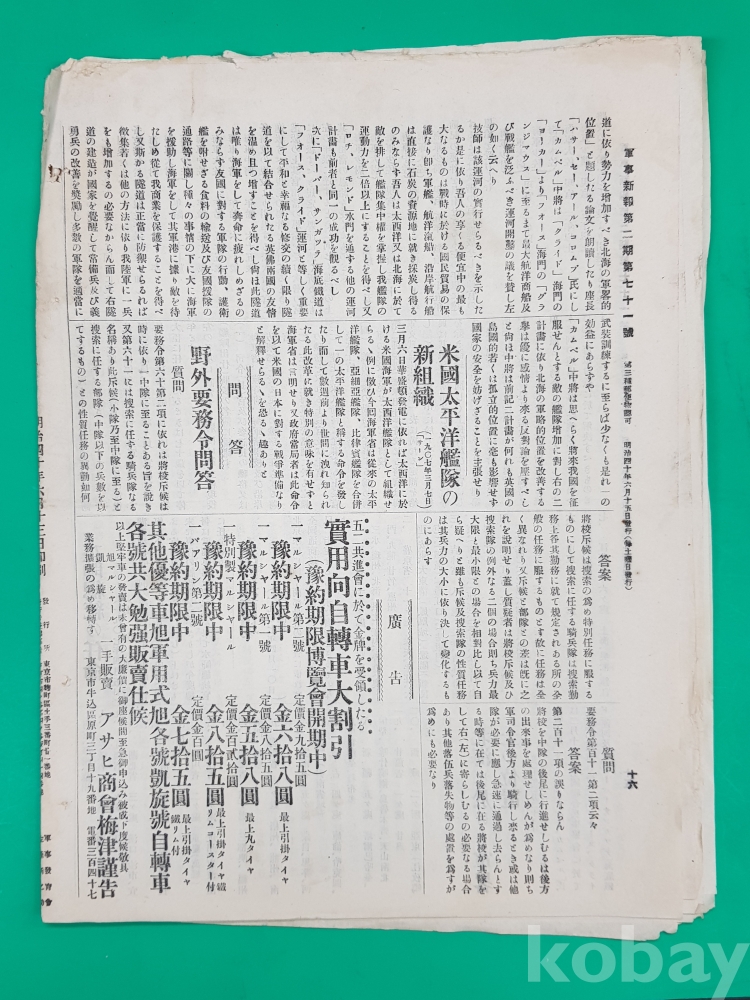 軍事新報第二期第七十一號
第三種郵便物認可 明治四十年六月十五日發行(每土曜日發行)
十六
道に依り勢力を增加すべき北海の軍畧的
位置」と題したる論文を朗讀したり座長
て「カムベル」中將は「クライド」海門の「グラ
ンジマウス」に至るまで最大航洋商船及
び戰艦を泛ふべき運河開鑿の議を賛し左
の如く云へり
技師は該運河の實行せらるべきを示した
るか是に依り吾人の享くる便宜中の最も
大なるものは戰時に於ける國民貿易の保
護なり即ち軍艦、航洋滊船、沿岸航行船
は直接に石炭の資源地に就き採炭し得る
のみならす吾人は太西洋又は北海に於て
敵を排して艦隊集中權を掌握し我艦隊の
運動力を二倍以上にすることを得べし又
「ロチ、レモンド」水門を通する他の運河
計畫も前者と同一の成功を觀るべし
次に「ドーバー、サンガツテ」海底鐵道は
「フォース、クライド」運河と等しく重要
にして平和と幸福なる修交の續く限り隧
道を以て結合せられたる英佛兩國の友情
を温め且つ增すことを得べし尙ほ此隧道
は唯り海軍をして奔命に疲れしめざるの
みならす友國に對する軍隊の行動、護衛
艦を附せざる食料の輸送及び友國援隊の
通路等に關し種々の事情の下に大に海軍
を援助し海軍をして其軍港に據り敵を待
たしめ從て我商業を保護することを得べ
し又斯かる隧道は正當に防禦せらるれば
徵集若くは他の方法に依り我陸軍に一兵
をも增加するの必要なからん而して右隧
道の建造が國家を覺醒して常備兵及び義
勇兵の改善を獎勵し多數の軍隊を適當に
武裝訓練するに至らば少なくも是れ一の
効益にあらすや
「カムベル」中將は思へらく將來我國を征
服せんとする敵の艦隊增加に對し右の二
計畫に依り北海の軍略的位置を改善する
擧は優に感情より來る反對論を壓すべし
と尙ほ中將は前記二計畫が何れも英國の
島國的若くは孤立的位置に毫も影響せず
國家の安全を妨げざることを主張せり
米國太平洋艦隊の
新組織
(一九〇七年三月七日)
三月六日華盛頓發電に依れば太西洋に於
ける米國海軍が太西洋艦隊として組織せ
らるゝ例に傚ひ今回海軍省は從來の太平
洋艦隊、亞細亞艦隊、比律賓艦隊を合併
して一の太平洋艦隊と稱する命令を發し
たり而して數週前より世間に洩れ知られ
たる此改革に就き特別の意味を有せずと
海軍省は言明せり又政府當局者は此命令
を以て米國の日本に對する戰爭準備なり
と解釋せらるゝを恐るゝ趣ありと
問答
野外要務令問答
質問
要務令第六十第二項に依れば將校斥候は
時に依り一中隊に至ることある旨を說き
又第六十一には搜索に任する騎兵隊なる
名稱あり此斥候(小隊乃至中隊に至る)と
搜索に任する部隊(中隊以下の兵數を以
てするもの)との性質任務の異動如何
答案
將校斥候は搜索の爲め特別任務に服する
ものにして搜索に任する騎兵隊は搜索勤
務上各其勤務に就て規定されある所の全
般の任務に服するものとす故に任務は全
く異なれり又斥候と部隊との差は既に之
れを說明せり蓋し質疑者は將校斥候及ひ
搜索隊の例外なる二個の場合則ち兵力最
大限と最小限との場合を相對比し以て自
ら疑へりと雖も斥候及搜索隊の性質任務
は其兵力の大小に依り決して變化するも
のにあらす
質問
要務令第百十一第二項云々
答案
第二百十一項の誤りならん
將校を中隊の後尾に行進せしむるは後方
の出來事を處理せしめんが爲めなり則ち
軍司令官後方より騎行し來るとき或は他
隊が必要に應し急速に通過し去らんとす
る時等に在ては後尾に在る將校が其隊を
して右(左)に寄らしむるの必要なる場合
あり其他落伍兵落失物等の處置を爲すが
爲めにも必要なり
廣告
五二共進會に於て金牌を受領したる
實用向自轉車大割引
(豫約期限博覽會開期中)
一マルシャール第二號 定價金九拾五圓
豫約期限中 金六拾八圓 最上引掛タイヤ
一マルシャール第一號 定價金八拾五圓
豫約期限中 金五拾八圓 最上丸タイヤ
一特別製マルシャール 定價金百貳拾圓
豫約期限中 金八拾五圓 最上引掛タイヤ鐵リムコースター付
一バァリン第二號 定價金百圓
豫約期限中 金七拾五圓 最上引掛タイヤ鐵リム付
其他優等車旭軍用式旭各號凱旋號自轉車
各號共大勉强販賣仕候
以上堅牢車の發賣は未曾有の大廉價に御座候間至急御申込み被成下度候敬具
旭マルシャール 凱旋 一手販賣 アサヒ商會梅津謹告
業務擴張の爲め移轉す 東京市牛込區原町三丁目十九番地 電番三百四十七